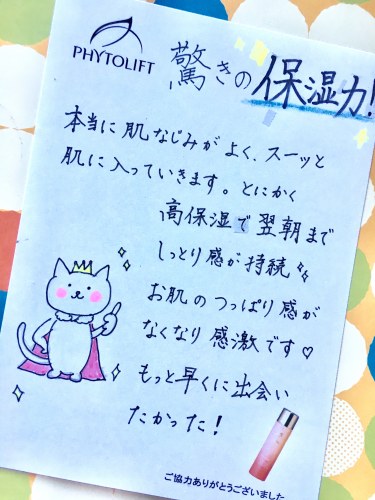 PHYTOLIFT
驚きの保湿力!
本当に肌なじみがよく、スーッと
肌に入っていきます。とにかく
高保湿で翌朝まで
しっとり感が持続
お肌のつっぱり感が
なくなり感激です♡
もっと早くに出会い
たかった!
ご協力ありがとうございました